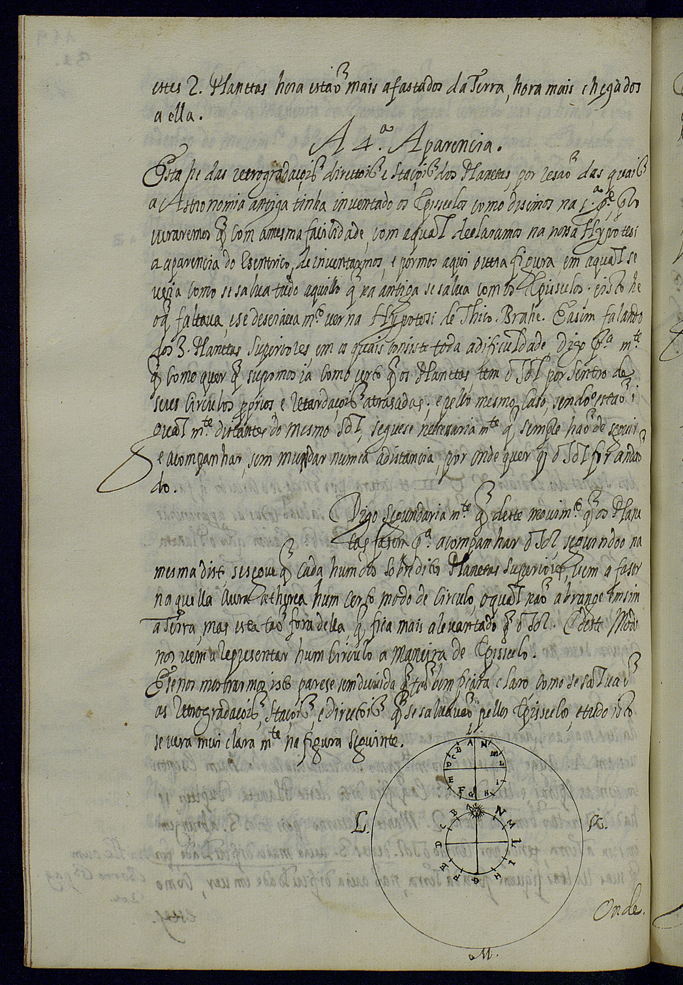 estes 2. Planetas hora estaõ mais afastados da Terra, hora mais chegados
a ella.
A 4.ª Aparencia.
Esta he das retrogradaçois directois e staçois dos Planetas por resaõ das quais
a Astronomia antiga tinha inventado os Episiclos como disemos na 1.ª p.te
q̃ com a mesma facilidade, com a qual declaramos na nosa Hypotesi
a aparencia do Esentrico, de inventarmos, e pormos aqui outra figura em a qual se
veja como se salva tudo aquillo q̃ na antiga se salva com os Episiclos. isto he
o q̃ faltava e se deseiava m.to ver na Hypotesi de Thico. Brahe. E asim falando
dos 3. Planetas Superiores, em os quais consiste toda a dificuldade Digo pr.ª m.te
q̃ como quer q̃ supomos ia como certo q̃ os Planetas tem o Sol por sentro de
seus Circulos pprios e retardaçois atrasadas; e pello mesmo caso, sendo estaõ i
gual m.te distantes do mesmo Sol, seguese necesaria m.te q̃ sempre haõ de seguir
e acompanhar, sem mundar nunca a distancia, por onde quer q̃ o Sol for andan
do.
Digo segundaria m.te q̃ deste movim.to q̃ os Plane
tas fasem p.ª acompanhar o Sol seguindoo na
mesma dist. se segue q̃ cada hum dos sobreditos Planetas Superiores, vem a faser
naquella Aura Etherea hum certo modo de Circulo, o qual naõ abrange em sim
a Terra, mas esta taõ fora della, q̃ fica mais alevantado q̃ o Sol. E deste Modo
nos vem a representar hum Circulo a maneira de Episiclo.
E se nos mostrarmos isto parese sem duvida q̃ ficará claro como se salvaõ
as retrogradaçois, Staçois, e Directois q̃ se salvavaõ pellos Episiclos, e tudo isto
se vera mui clara m.te na figura seguinte.
L.
A N M L I H G F E D C B
A N M L I H G F E D C B
M.
Onde.